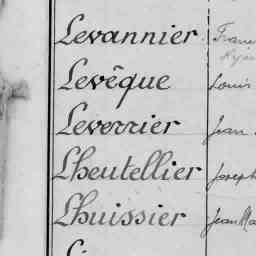 Levannier
Levêque Louis
Leverrier Jean
Lheutellier Joseph
Lhuissier Jean Ma